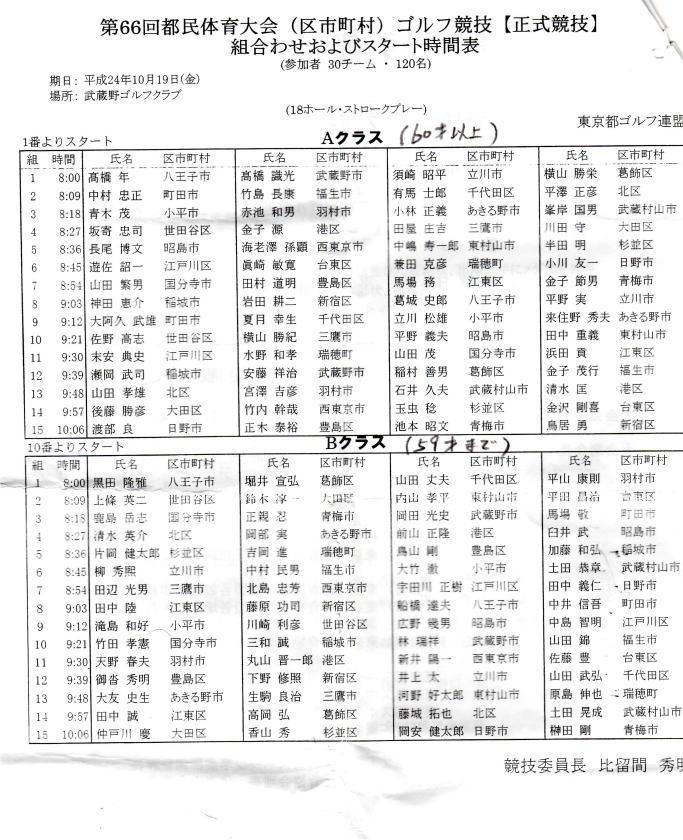 第66回都民体育大会（区市町村）ゴルフ競技【正式競技】
組合わせおよびスタート時間表
(参加者 30チーム ・ 120名)
期日: 平成24年10月19日(金)
場所: 武蔵野ゴルフクラブ
(18ホール・ストロークプレー)
東京都ゴルフ連盟
1番よりスタート Aクラス (60才以上)
組 時間 氏名 区市町村 氏名 区市町村 氏名 区市町村 氏名 区市町村
1 8:00 髙橋 年 八王子市 髙橋 識光 武蔵野市 須崎 昭平 立川市 横山 勝栄 葛飾区
2 8:09 中村 忠正 町田市 竹島 長康 福生市 有馬 士郎 千代田区 平澤 正彦 北区
3 8:18 青木 茂 小平市 赤池 和男 羽村市 小林 正義 あきる野市 峯岸 国男 武蔵村山市
4 8:27 坂寄 忠司 世田谷区 金子 源 港区 田屋 庄吉 三鷹市 川田 守 大田区
5 8:36 長尾 博文 昭島市 海老澤 孫顕 西東京市 中嶋 寿一郎 東村山市 半田 明 杉並区
6 8:45 遊佐 詔一 江戸川区 眞崎 敏寛 台東区 兼田 克彦 瑞穂町 小川 友一 日野市
7 8:54 山田 繁男 国分寺市 田村 道明 豊島区 馬場 務 江東区 金子 節男 青梅市
8 9:03 神田 恵介 稲城市 岩田 耕二 新宿区 葛城 史郎 八王子市 平野 実 立川市
9 9:12 大阿久 武雄 町田市 夏目 幸生 千代田区 立川 松雄 小平市 来住野 秀夫 あきる野市
10 9:21 佐野 高志 世田谷区 横山 勝紀 三鷹市 平野 義夫 昭島市 田中 重義 東村山市
11 9:30 末安 典史 江戸川区 水野 和孝 瑞穂町 山田 茂 国分寺市 浜田 貢 江東区
12 9:39 瀬岡 武司 稲城市 安藤 祥治 武蔵野市 稲村 善男 葛飾区 金子 茂行 福生市
13 9:48 山田 孝雄 北区 宮澤 吉彦 羽村市 石井 久夫 武蔵村山市 清水 匡 港区
14 9:57 後藤 勝彦 大田区 竹内 幹哉 西東京市 玉虫 稔 杉並区 金沢 剛喜 台東区
15 10:06 渡部 良 日野市 正木 泰裕 豊島区 池本 昭文 青梅市 鳥居 勇 新宿区
10番よりスタート Bクラス (59才まで)
組 時間 氏名 区市町村 氏名 区市町村 氏名 区市町村 氏名 区市町村
1 8:00 黒田 隆雅 八王子市 堀井 宣弘 葛飾区 山田 丈夫 千代田区 平山 康則 羽村市
2 8:09 上條 英二 世田谷区 鈴木 淳一 大田区 内山 孝平 東村山市 平田 昌治 台東区
3 8:18 鹿島 岳志 国分寺市 正親 忍 青梅市 岡田 光史 武蔵野市 馬場 敬 町田市
4 8:27 清水 英介 北区 岡部 実 あきる野市 前山 正隆 港区 臼井 武 昭島市
5 8:36 片岡 健太郎 杉並区 吉岡 進 瑞穂町 鳥山 剛 豊島区 加藤 和弘 稲城市
6 8:45 柳 秀熙 立川市 中村 民男 福生市 大竹 徹 小平市 土田 恭章 武蔵村山市
7 8:54 田辺 光男 三鷹市 北島 忠芳 西東京市 宇田川 正樹 江戸川区 田中 義仁 日野市
8 9:03 田中 陸 江東区 藤原 功司 新宿区 船橋 達夫 八王子市 中井 信吾 町田市
9 9:12 滝島 和好 小平市 川崎 利彦 世田谷区 広野 幾男 昭島市 中島 智明 江戸川区
10 9:21 竹田 孝憲 国分寺市 三和 誠 稲城市 林 瑞祥 武蔵野市 山田 錦 福生市
11 9:30 天野 春夫 羽村市 丸山 晋一郎 港区 新井 陽一 西東京市 佐藤 豊 台東区
12 9:39 御沓 秀明 豊島区 下野 修照 新宿区 井上 太 立川市 山田 武弘 千代田区
13 9:48 大友 史生 あきる野市 生駒 良治 三鷹市 河野 好太郎 東村山市 原島 伸也 瑞穂町
14 9:57 田中 誠 江東区 高岡 弘 葛飾区 藤城 拓也 北区 土田 晃成 武蔵村山市
15 10:06 仲戸川 慶 大田区 香山 秀 杉並区 岡安 健太郎 日野市 榊田 剛 青梅市
競技委員長 比留間 秀明